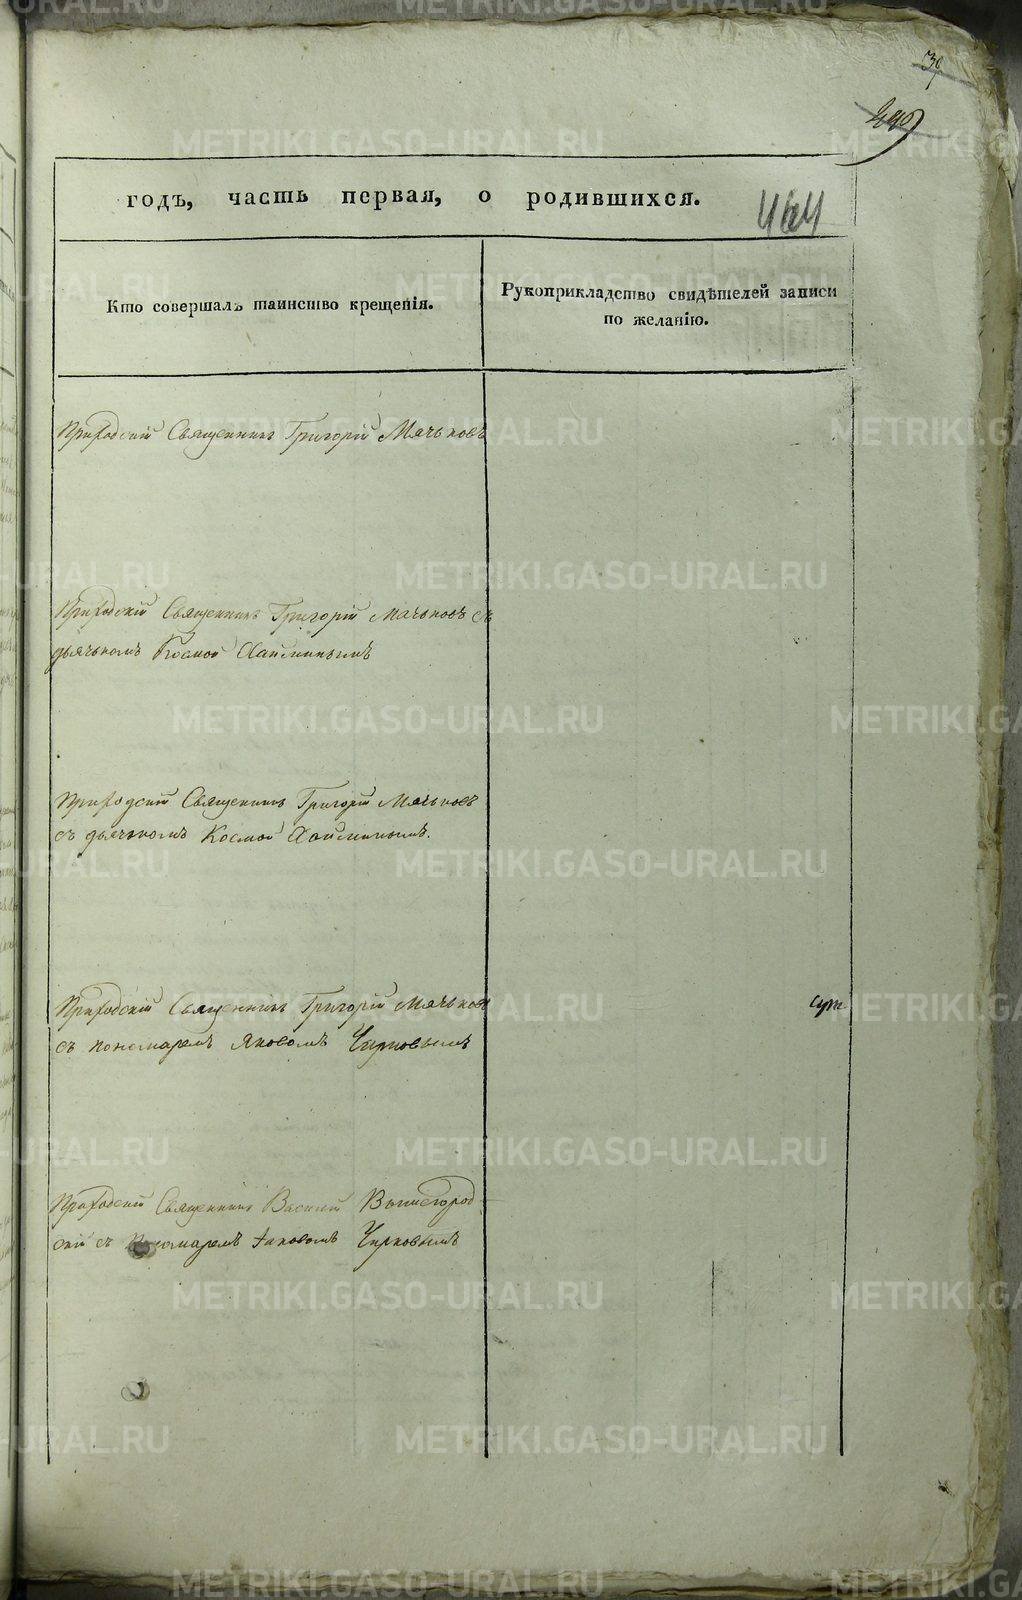 464
годъ, часть первая, о родившихся.
Кто совершалъ таинство крещенія.
Рукоприкладство свидѣтелей записи
по желанію.
Приходскій Священникъ Григорій Мячьковъ
Приходскій Священникъ Григорій Мячьковъ съ
дьячькомъ Космой
Приходскій Священникъ Григорій Мячьковъ
съ дьячкомъ Космой
Приходскій Священникъ Григорій Мячьковъ
съ пономаремъ Яковомъ Чирковымъ
Приходскій Священникъ Василій Вышегород
скій съ Пономаремъ Іаковомъ Чирковымъ
METRIKI.GASO-URAL.RU